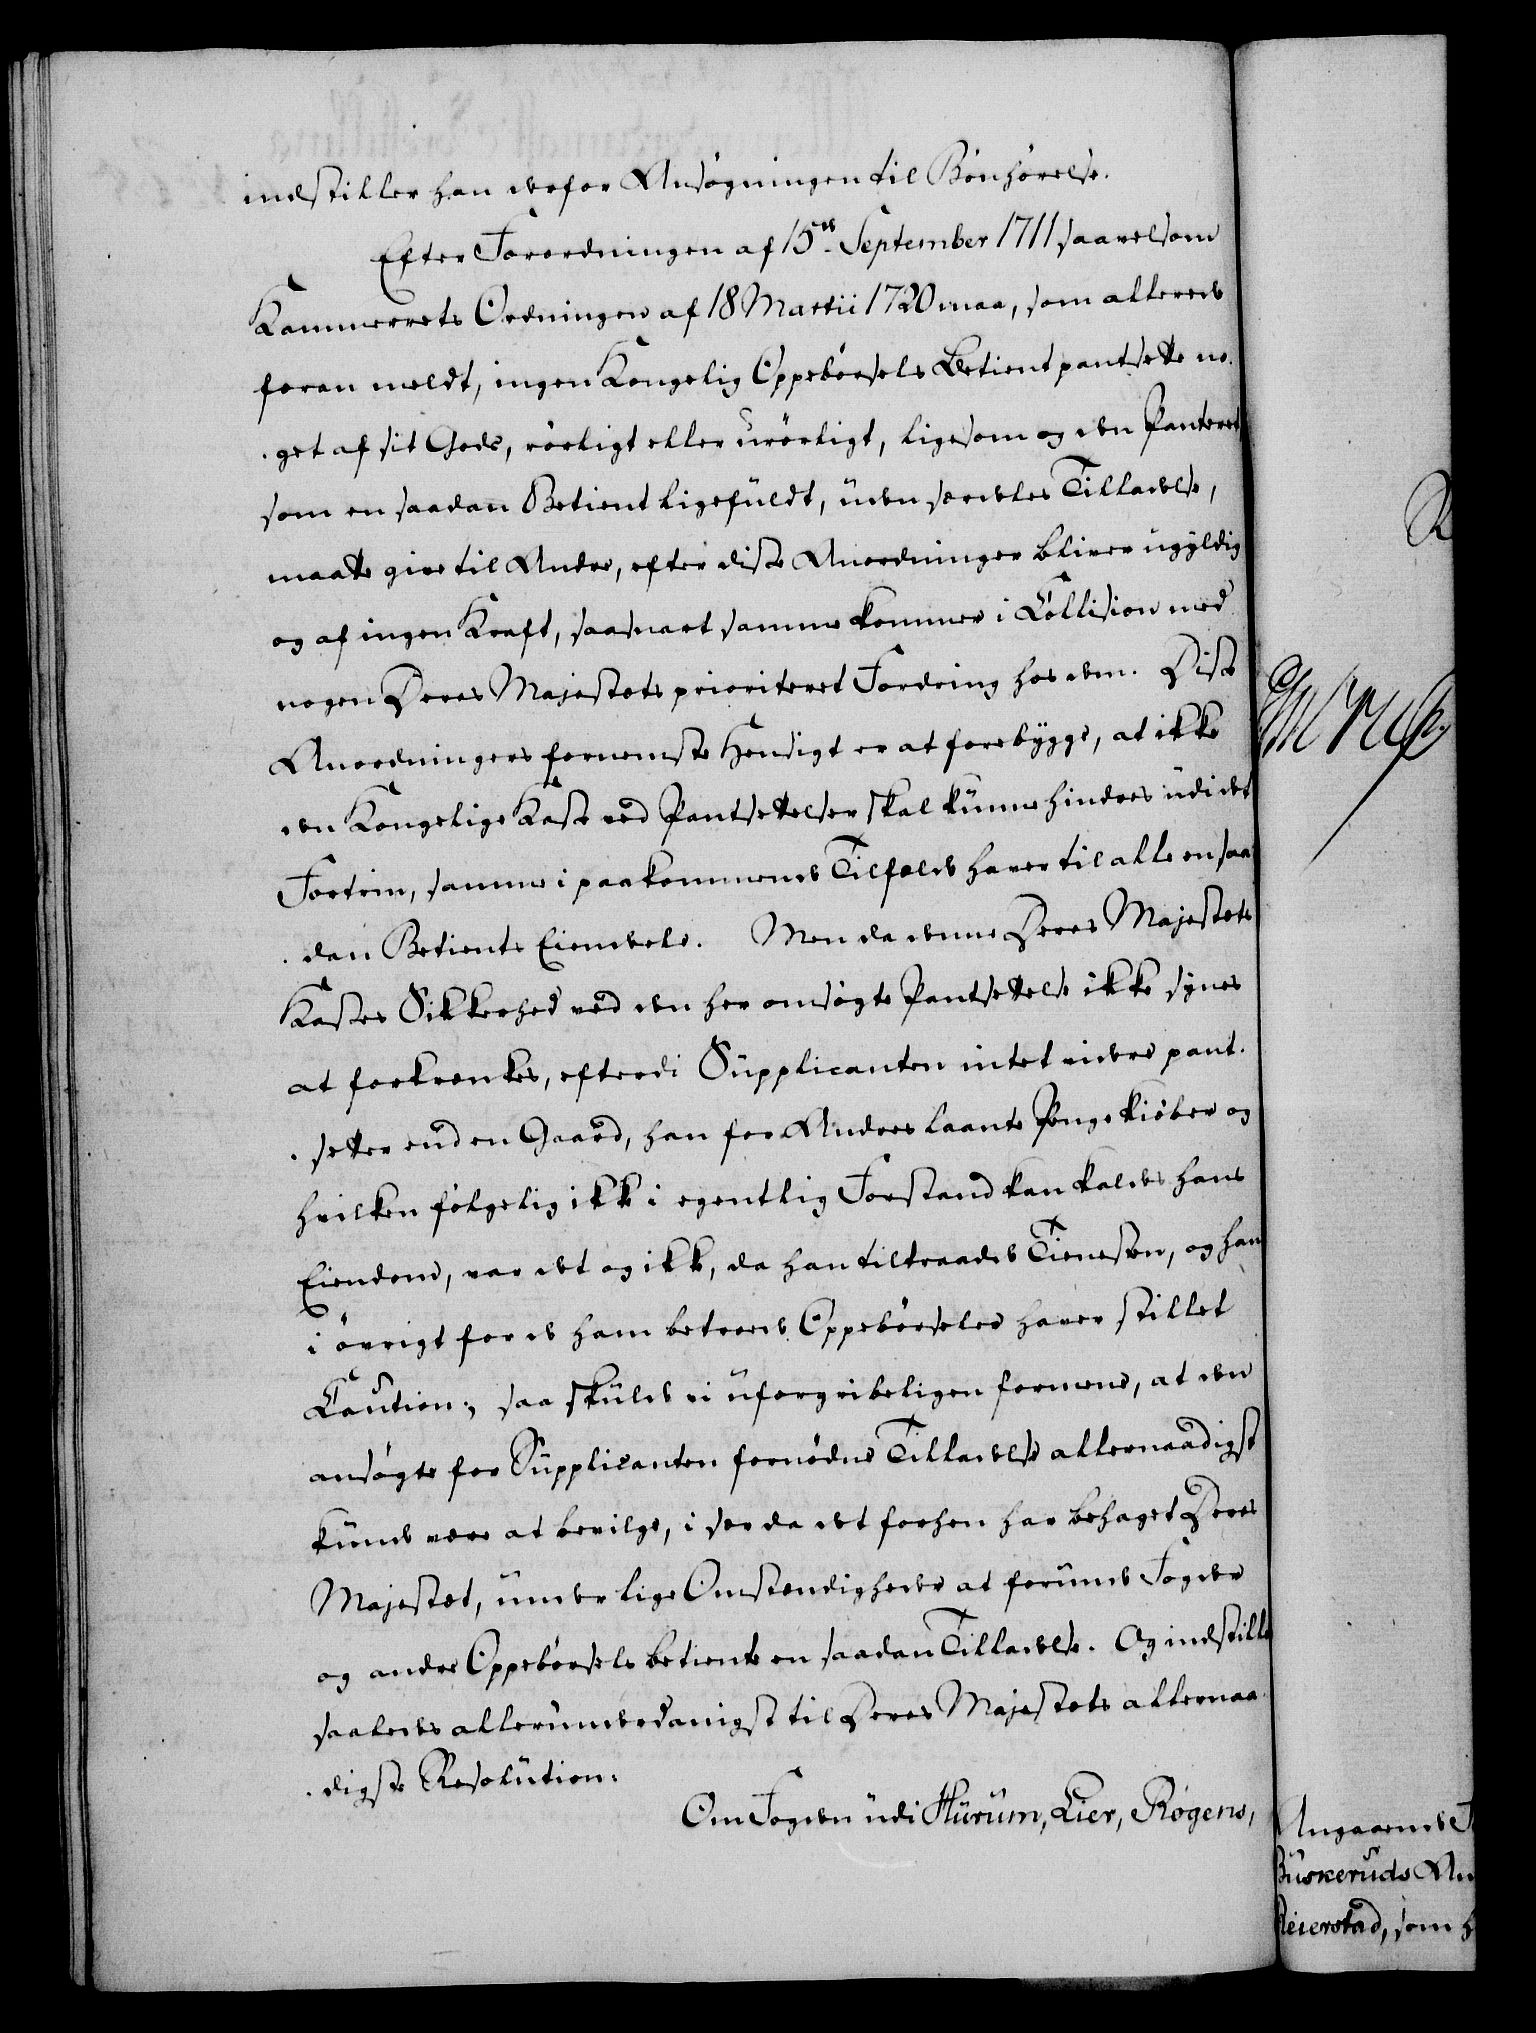 indstiller han derfor Ansøgningen til Bønhørelse.
Efter Forordningen af 15de September 1711 saavelsom
Kammerets Ordningen af 18 Martii 1720 maa, som allerede
foran meldt, ingen Kongelig Oppebørsels Betient pantsette no-
get af sit Gods, rørligt eller urørligt, ligesom og den Panteret
som en saadan Betient ligefuldt, uden særdeles Tilladelse,
maatte give til Andre, efter disse Anordninger bliver ugyldig
og af ingen Kraft, saasnart samme kommer i Collision med
nogen Deres Majestets prioriteret Fordring hos dem. Disse
Anordningers fornemste Hensigt er at forebygge, at ikke
den Kongelige Kasse ved Pantsettelser skal kunne hindres udi det
Fortrin, samme i paakommende Tilfælde haver til alle en saa-
dan Betients Eiendele. Men da denne Deres Majestets
Kasses Sikkerhed ved den her omsøgte Pantsettelse ikke synes
at forkrænkes, efterdi Supplicanten intet videre pant-
setter end en Gaard, han for Andres laante Penge kiøber og
hvilken følgelig ikke i egentlig Forstand kan kaldes hans
Eiendom, var det og ikke, da han tiltraadde Tienesten, og han
i øvrigt for de ham betroede Oppebørseler haver stillet
Caution; saa skulde vi uforgribeligen formene, at den
ansøgte for Supplicanten fornødne Tilladelse allernaadigst
kunde være at bevilge, i sær da det forhen har behaget Deres
Majestet, under lige Omstændigheder at forunde Fogder
og andre Oppebørsels betiente en saadan Tilladelse. Og indstille
saaledes allerunderdanigst til Deres Majestets allernaa-
digste Resolution.
Om Fogden udi Hurum, Lier, Røgens,
Angaaende
Buskeruds
Reierstad, som